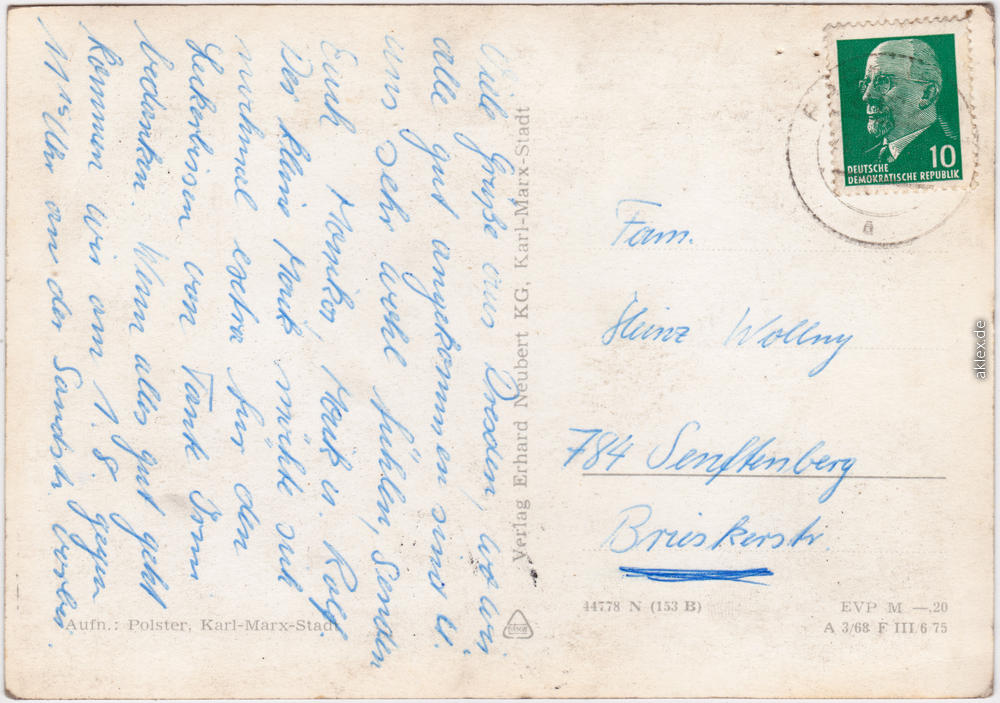 Viele Grüße aus Dresden, wo wir
alle gut angekommen sind u.
uns sehr wohl fühlen, senden
Euch Monika, Maik u. Rolf.
Der kleine Maik möchte sich
nochmal extra für den
Leckerbissen von Tante Irmi
bedanken. Wenn alles gut geht
kommen wir am 1. 8. gegen
11 15 Uhr an der Sandstr. vorbei.
Aufn.: Polster, Karl-Marx-Stadt
Verlag Erhard Neubert KG, Karl-Marx-Stadt
DEUTSCHE
DEMOKRATISCHE REPUBLIK
10
a
Fam.
Heinz Wollny
784 Senftenberg
Brieskerstr.
44778 N (153 B)
EVP M —,20
A 3/68 F III/6 75
aklex.de